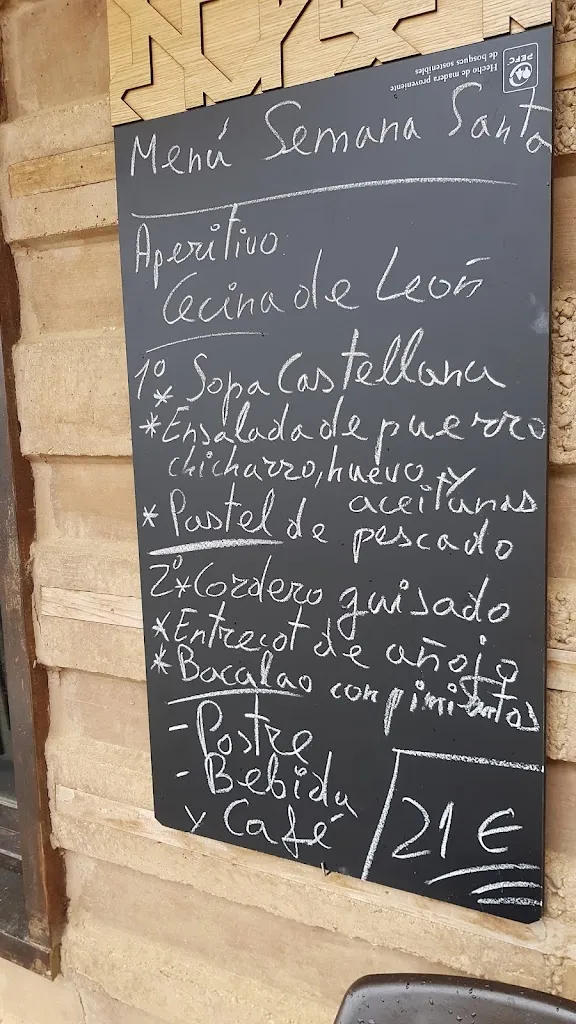 PEFC
Hecho de madera proveniente
de bosques sostenibles
Menú Semana Santa
Aperitivo
Cecina de León
1º
* Sopa Castellana
* Ensalada de puerro
chicharro, huevo y
aceitunas
* Pastel de pescado
2º * Cordero guisado
* Entrecot de añojo
* Bacalao con pimientos
- Postre
- Bebida
y Café
21 €